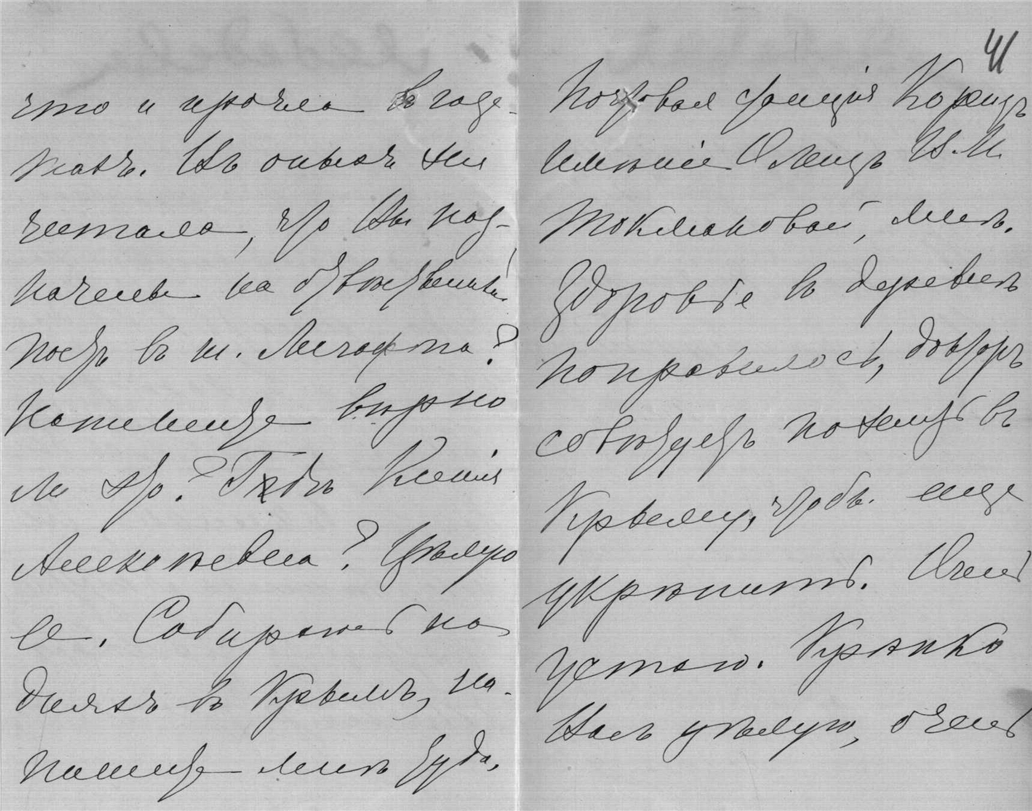 что и прочла в газе-
тахъ.
читала, что Вы наз-
начены на
постъ въ ш.
Напишите вѣрно
ли это? Гдѣ Ксенія
Алексѣевна? Цѣлую
ее. Собираюсь на
дняхъ въ Крымъ, на-
пишите мнѣ туда,
41
Почтовая станція Кореизъ
имѣніе Олеизъ И. М.
Токмаковой, мнѣ.
Здоровье въ деревнѣ
поправилось, докторъ
совѣтуетъ пожить въ
Крыму, чтобъ еще
укрѣпить. Очень
устаю. Крѣпко
Васъ цѣлую, очень